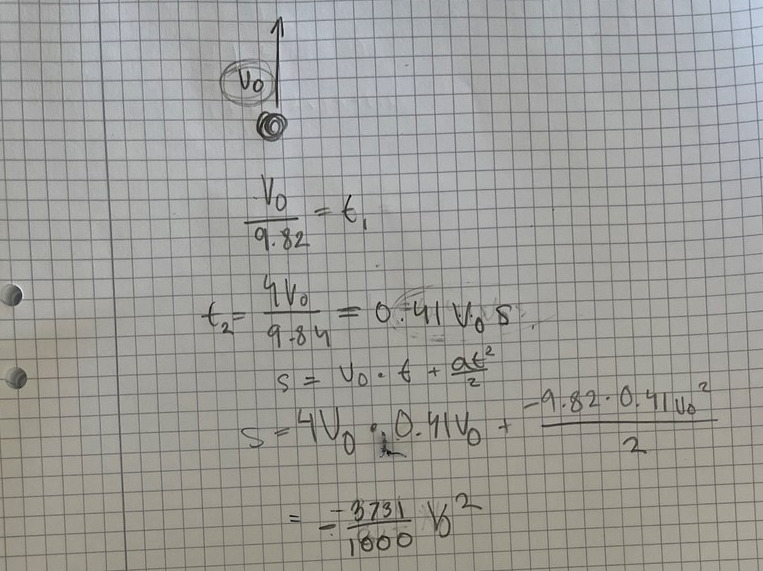 V₀
V₀/9.82 = t₁
t₂ = 4V₀/9.84 = 0.41 V₀ s.
s = V₀ · t + at²/2
s = 4V₀ · 0.41V₀ + -9.82 · 0.41V₀²/2
= - -3731/1000 V₀²